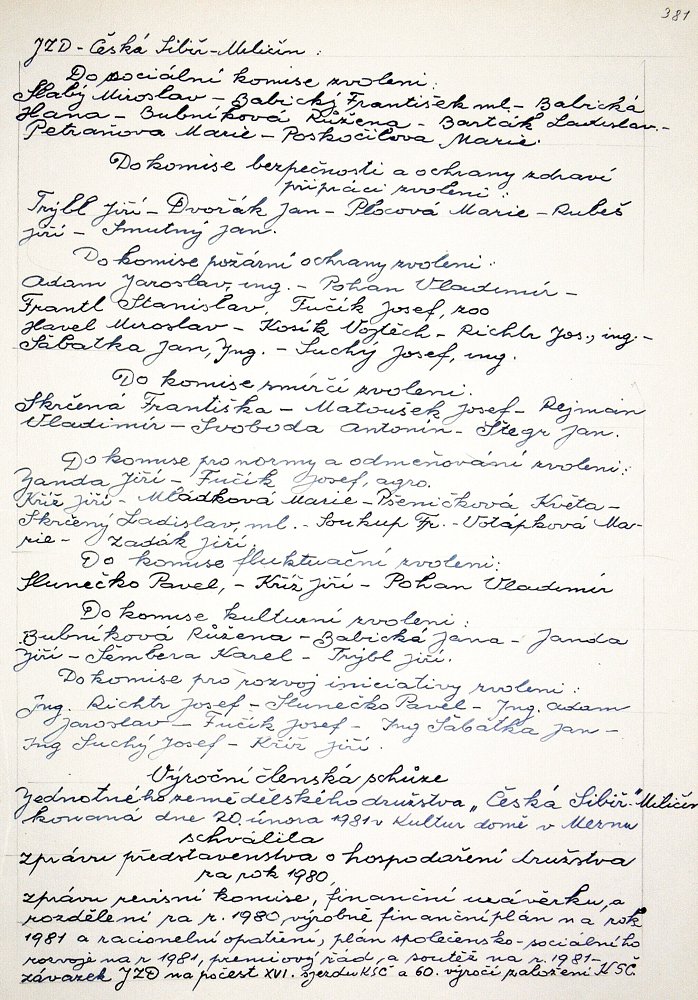 381
JZD - Česká Sibiř - Miličín :
Do sociální komise zvoleni :
Slabý Miroslav - Babický František ml. - Babická
Hana - Bubníková Růžena - Barták Ladislav -
Petráňová Marie - Poskočilova Marie.
Do komise bezpečnosti a ochrany zdraví
při práci zvoleni :
Trýbl Jiří - Dvořák Jan - Plocová Marie - Rubeš
Jiří - Smutný Jan.
Do komise požární ochrany zvoleni :
Adam Jaroslav, ing. - Pohan Vladimír -
Frantl Stanislav, Fučík Josef, zoo
Havel Miroslav - Kosík Vojtěch - Richtr Jos., ing. -
Sábatka Jan, Ing. - Suchý Josef, ing.
Do komise smírčí zvoleni.
Skrčená Františka - Matoušek Josef - Rejman
Vladimír - Svoboda Antonín - Štegr Jan.
Do komise pro normy a odměňování zvoleni :
Janda Jiří - Fučík Josef, agro.
Kříž Jiří - Mládková Marie - Pšeničková Květa -
Skrčený Ladislav, ml. - Soukup Fr. - Votápková Ma-
rie - Zadák Jiří.
Do komise fluktuační zvoleni:
Slunečko Pavel, - Kříž Jiří - Pohan Vladimír
Do komise kulturní zvoleni :
Bubníková Růžena - Babická Jana - Janda
Jiří - Šembera Karel - Trýbl Jiří.
Do komise pro rozvoj iniciativy zvoleni :
Ing. Richtr Josef - Slunečko Pavel - Ing. Adam
Jaroslav - Fučík Josef - Ing Sábatka Jan -
Ing Suchý Josef - Kříž Jiří.
Výroční členská schůze
Jednotného zemědělského družstva „Česká Sibiř" Miličín
konaná dne 20. února 1981 v Kultur domě v Mezně
schválila
zprávu představenstva o hospodaření družstva
za rok 1980,
zprávu revisní komise, finanční uzávěrku, a
rozdělení za r. 1980, výrobně finanční plán na rok
1981 a racionelní opatření, plán společensko-sociálního
rozvoje na r 1981, premiový řád, a soutěž na r. 1981 -
závazek JZD na počest XVI. sjezdu KSČ a 60. výročí založení KSČ.